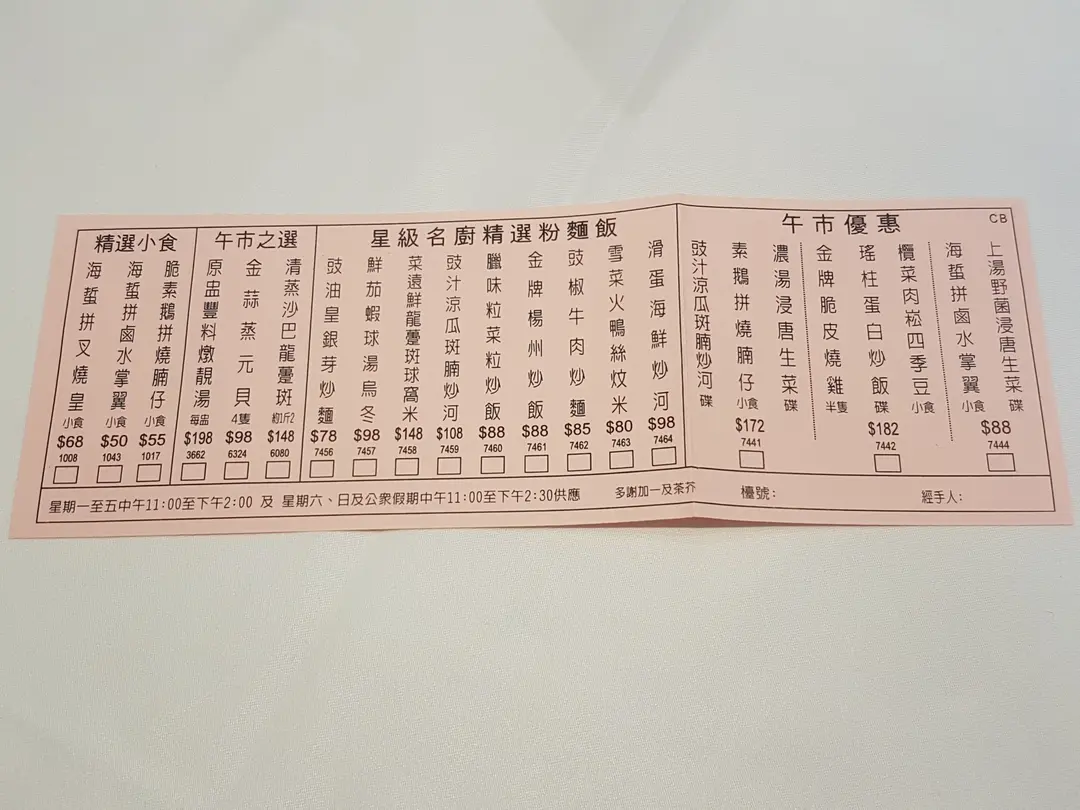 精選小食
海蜇拼叉燒皇 小食
$68
1008
海蜇拼鹵水掌翼 小食
$50
1043
脆素鵝拼燒腩仔 小食
$55
1017
午市之選
原盅豐料燉靚湯 每盅
$198
3662
金蒜蒸元貝 4隻
$98
6324
清蒸沙巴龍躉斑 約斤2
$148
6080
星級名廚精選粉麵飯
豉油皇銀芽炒麵
$78
7456
鮮茄蝦球湯烏冬
$98
7457
菜遠鮮龍躉斑球窩米
$148
7458
豉汁涼瓜斑腩炒河
$108
7459
臘味粒菜粒炒飯
$88
7460
金牌楊州炒飯
$88
7461
豉椒牛肉炒麵
$85
7462
雪菜火鴨絲炆米
$80
7463
滑蛋海鮮炒河
$98
7464
午市優惠
CB
豉汁涼瓜斑腩炒河 碟
素鵝拼燒腩仔 小食
濃湯浸唐生菜 碟
$172
7441
金牌脆皮燒雞 半隻
瑤柱蛋白炒飯 碟
欖菜肉崧四季豆 小食
$182
7442
海蜇拼鹵水掌翼 小食
上湯野菌浸唐生菜 碟
$88
7444
星期一至五中午11:00至下午2:00 及 星期六、日及公衆假期中午11:00至下午2:30供應
多謝加一及茶芥
檯號:
經手人: